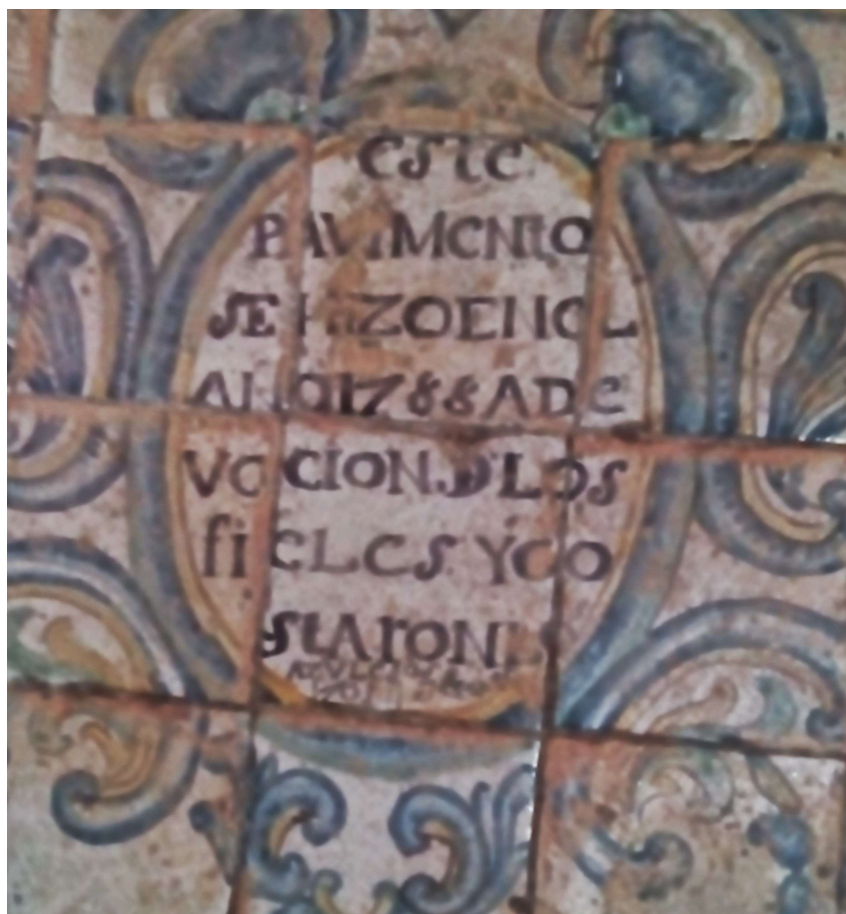 ESTE
PAVIMENTO
SE HIZO EN EL
AÑO 1788 A DE
VOCION D LOS
fiELES Y CO
STARON